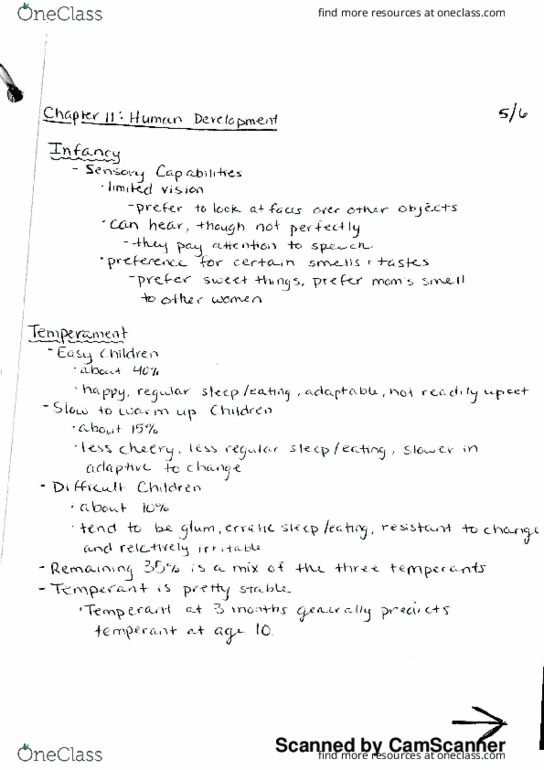 OneClass
find more resources at oneclass.com
Chapter 11: Human Development
5/6
Infancy
- Sensory Capabilities
· limited vision
- prefer to look at faces over other objects
· can hear, though not perfectly
- they pay attention to speech
· preference for certain smells + tastes
- prefer sweet things, prefer mom's smell
to other women
Temperament
- Easy Children
· about 40%
· happy, regular sleep/eating, adaptable, not readily upset
- Slow to warm up Children
· about 15%
· less cheery, less regular sleep/eating, slower in
adaptive to change
- Difficult Children
· about 10%
· tend to be glum, erratic sleep/eating, resistant to change
and relctively irritable
- Remaining 35% is a mix of the three temperants
- Temperant is pretty stable.
· Temperant at 3 months generally predicts
temperant at age 10.
Scanned by CamScanner
OneClass
find more resources at oneclass.com